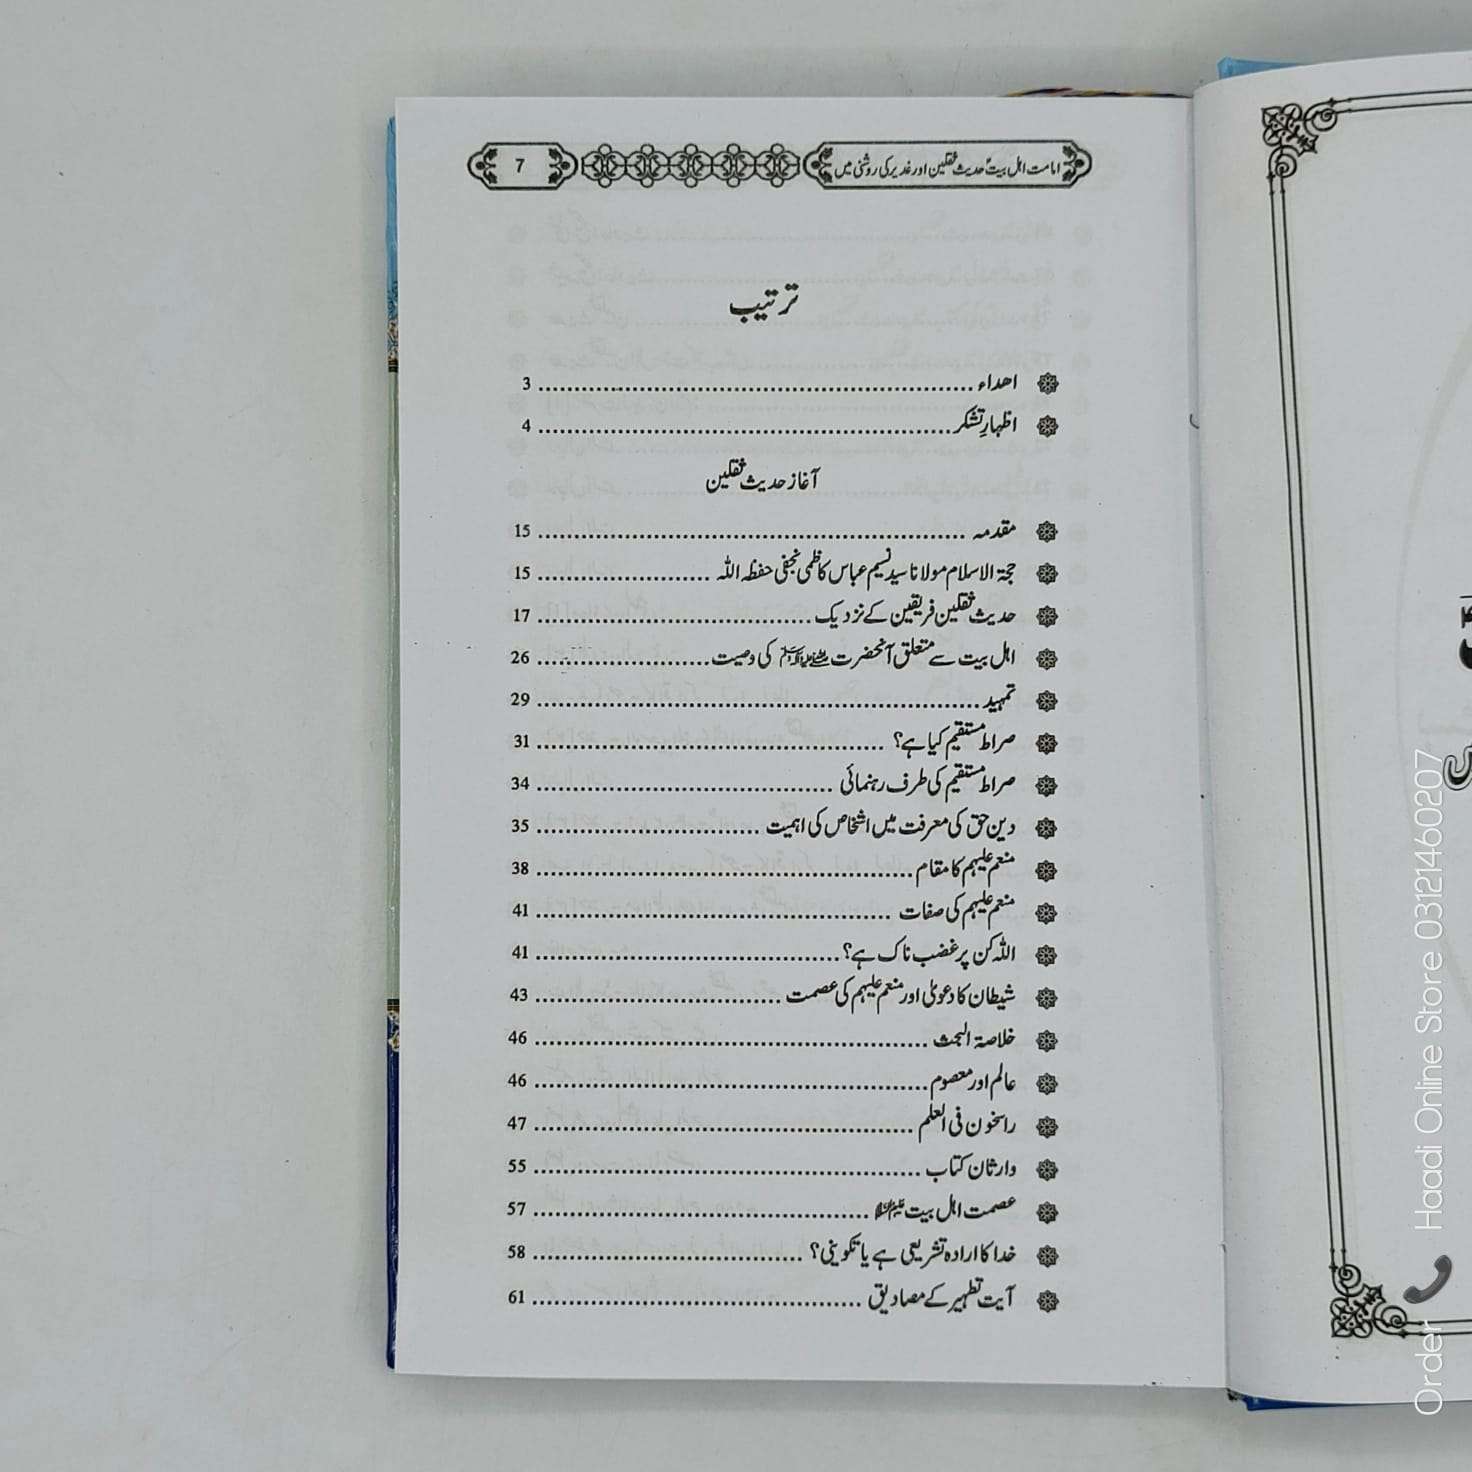 امامت اہل بیتؑ حدیث ثقلین اور غدیر کی روشنی میں 7
ترتیب
اھداء ........ 3
اظہارِ تشکر ........ 4
آغاز حدیث ثقلین
مقدمہ ........ 15
حجۃ الاسلام مولانا سید نسیم عباس کاظمی نجفی حفظہ اللہ ........ 15
حدیث ثقلین فریقین کے نزدیک ........ 17
اہل بیت سے متعلق آنحضرت ﷺ کی وصیت ........ 26
تمہید ........ 29
صراط مستقیم کیا ہے؟ ........ 31
صراط مستقیم کی طرف رہنمائی ........ 34
دین حق کی معرفت میں اشخاص کی اہمیت ........ 35
منعم علیہم کا مقام ........ 38
منعم علیہم کی صفات ........ 41
اللہ کن پر غضب ناک ہے؟ ........ 41
شیطان کا دعویٰ اور منعم علیہم کی عصمت ........ 43
خلاصۃ البحث ........ 46
عالم اور معصوم ........ 46
راسخون فی العلم ........ 47
وارثان کتاب ........ 55
عصمت اہل بیت علیہم السلام ........ 57
خدا کا ارادہ تشریعی ہے یا تکوینی؟ ........ 58
آیت تطہیر کے مصادیق ........ 61
Order Haadi Online Store 03121460207